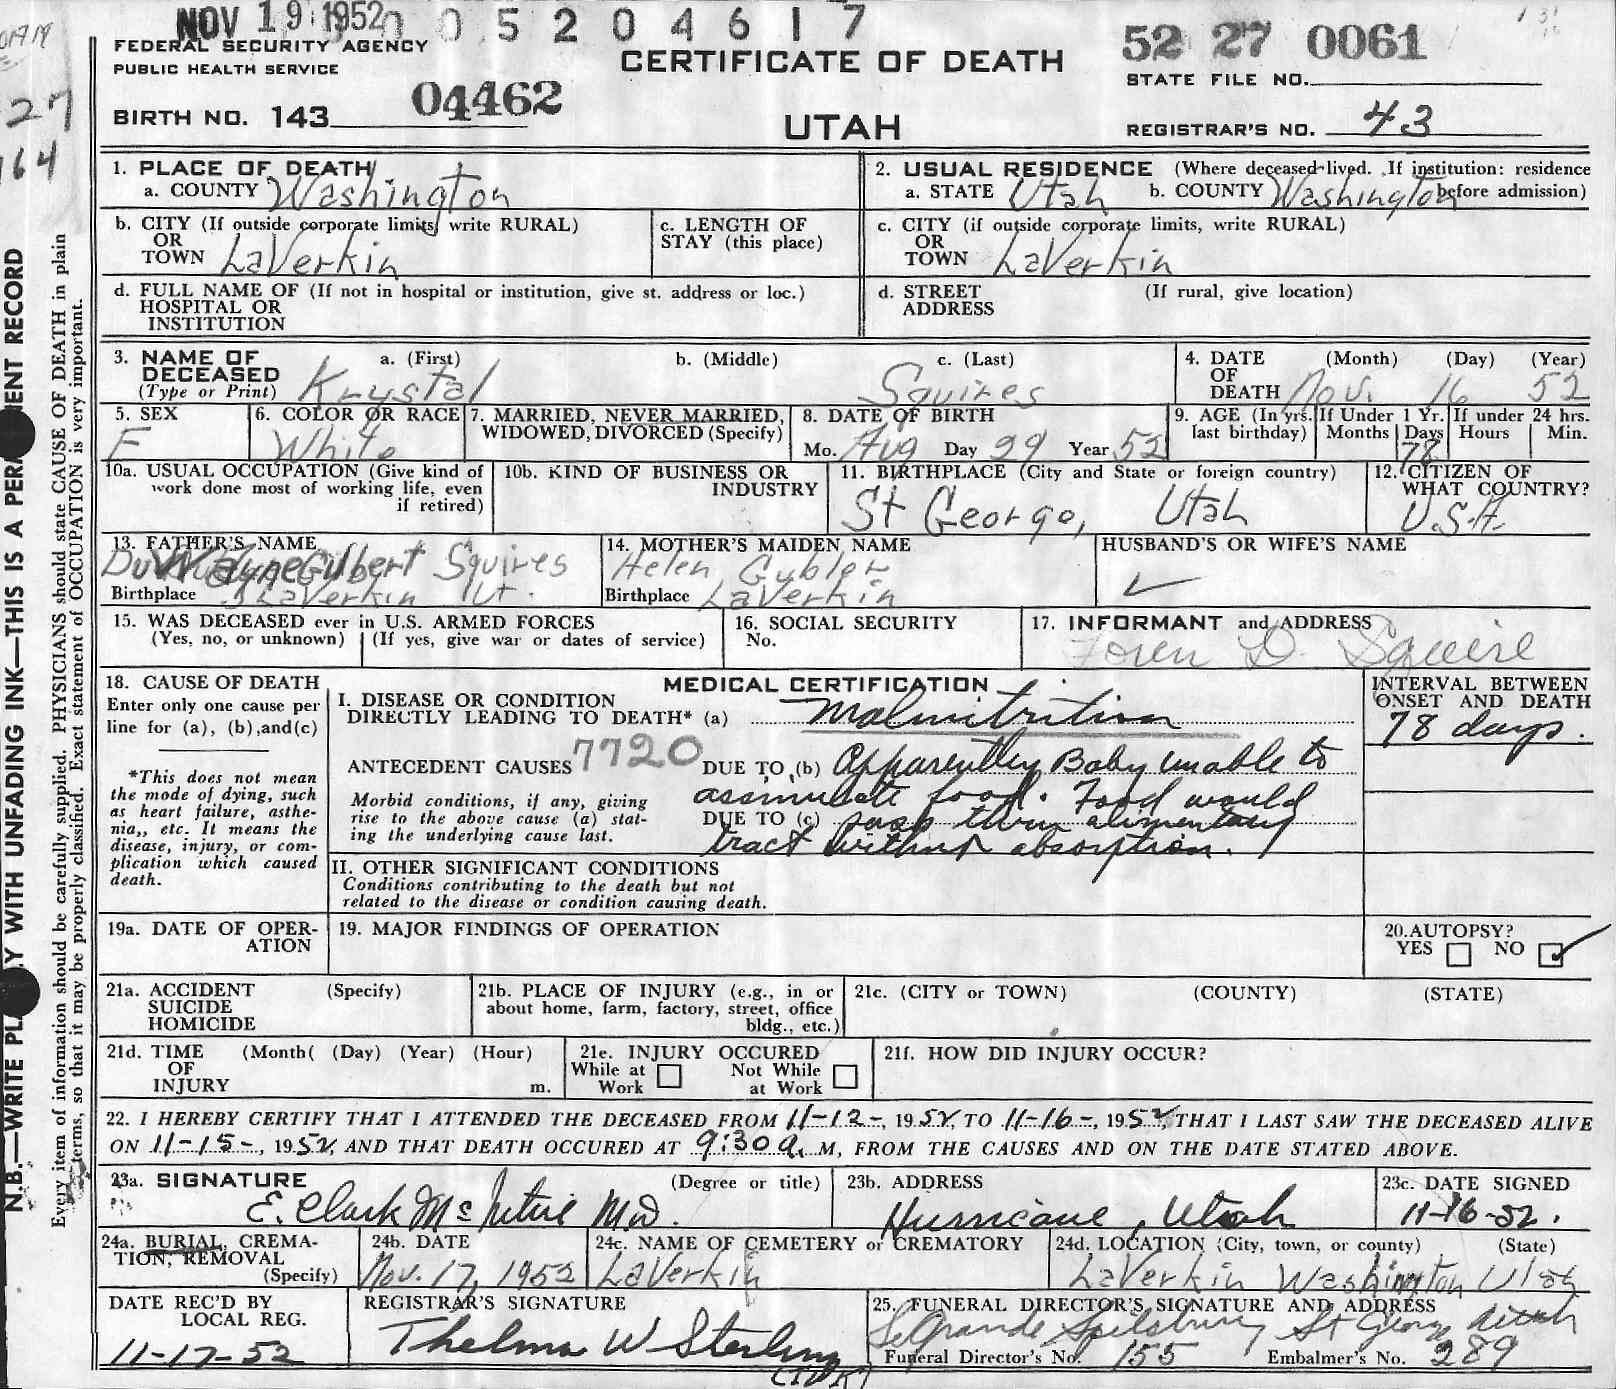 NOV 19 1952 0 0 5 2 0 4 6 1 7
FEDERAL SECURITY AGENCY
PUBLIC HEALTH SERVICE
CERTIFICATE OF DEATH
52 27 0061
STATE FILE NO.
27
164
BIRTH NO. 143 04462
UTAH
REGISTRAR'S NO. 43
1. PLACE OF DEATH
a. COUNTY Washington
2. USUAL RESIDENCE (Where deceased lived. If institution: residence before admission)
a. STATE Utah b. COUNTY Washington
b. CITY (If outside corporate limits, write RURAL)
OR
TOWN LaVerkin
c. LENGTH OF
STAY (this place)
c. CITY (if outside corporate limits, write RURAL)
OR
TOWN LaVerkin
d. FULL NAME OF (If not in hospital or institution, give st. address or loc.)
HOSPITAL OR
INSTITUTION
d. STREET (If rural, give location)
ADDRESS
3. NAME OF a. (First) b. (Middle) c. (Last)
DECEASED
(Type or Print) Krystal Squires
4. DATE (Month) (Day) (Year)
OF
DEATH Nov. 16 52
5. SEX
F
6. COLOR OR RACE
White
7. MARRIED, NEVER MARRIED,
WIDOWED, DIVORCED (Specify)
8. DATE OF BIRTH
Mo. Aug Day 29 Year 52
9. AGE (In yrs. last birthday)
If Under 1 Yr.
Months Days
78
If under 24 hrs.
Hours Min.
10a. USUAL OCCUPATION (Give kind of
work done most of working life, even
if retired)
10b. KIND OF BUSINESS OR
INDUSTRY
11. BIRTHPLACE (City and State or foreign country)
St George, Utah
12. CITIZEN OF
WHAT COUNTRY?
U.S.A.
13. FATHER'S NAME
Gilbert Squires
Birthplace LaVerkin Ut.
14. MOTHER'S MAIDEN NAME
Helen Gubler
Birthplace LaVerkin
HUSBAND'S OR WIFE'S NAME
15. WAS DECEASED ever in U.S. ARMED FORCES
(Yes, no, or unknown) (If yes, give war or dates of service)
16. SOCIAL SECURITY
No.
17. INFORMANT and ADDRESS
D. Squire
18. CAUSE OF DEATH
Enter only one cause per
line for (a), (b), and (c)
*This does not mean
the mode of dying, such
as heart failure, asthe-
nia,, etc. It means the
disease, injury, or com-
plication which caused
death.
MEDICAL CERTIFICATION
I. DISEASE OR CONDITION
DIRECTLY LEADING TO DEATH* (a) Malnutrition
ANTECEDENT CAUSES 7720 DUE TO (b) Apparently Baby unable to
assimulate food. Food would
Morbid conditions, if any, giving
rise to the above cause (a) stat-
ing the underlying cause last.
DUE TO (c) pass thru alimentary
tract without absorption.
INTERVAL BETWEEN
ONSET AND DEATH
78 days.
II. OTHER SIGNIFICANT CONDITIONS
Conditions contributing to the death but not
related to the disease or condition causing death.
19a. DATE OF OPER-
ATION
19. MAJOR FINDINGS OF OPERATION
20. AUTOPSY?
YES NO
21a. ACCIDENT (Specify)
SUICIDE
HOMICIDE
21b. PLACE OF INJURY (e.g., in or
about home, farm, factory, street, office
bldg., etc.)
21c. (CITY or TOWN) (COUNTY) (STATE)
21d. TIME (Month( (Day) (Year) (Hour)
OF
INJURY m.
21e. INJURY OCCURED
While at Not While
Work at Work
21f. HOW DID INJURY OCCUR?
22. I HEREBY CERTIFY THAT I ATTENDED THE DECEASED FROM 11-12-, 1952, TO 11-16-, 1952, THAT I LAST SAW THE DECEASED ALIVE
ON 11-15-, 1952, AND THAT DEATH OCCURED AT 9:30 a. M, FROM THE CAUSES AND ON THE DATE STATED ABOVE.
23a. SIGNATURE (Degree or title)
E. Clark McIntire M.D.
23b. ADDRESS
Hurricane, Utah
23c. DATE SIGNED
11-16-52.
24a. BURIAL, CREMA-
TION, REMOVAL
(Specify)
24b. DATE
Nov. 17, 1952
24c. NAME OF CEMETERY or CREMATORY
LaVerkin
24d. LOCATION (City, town, or county) (State)
LaVerkin Washington Utah
DATE REC'D BY
LOCAL REG.
11-17-52
REGISTRAR'S SIGNATURE
Thelma W Sterling
25. FUNERAL DIRECTOR'S SIGNATURE AND ADDRESS
LeGrande Spilsbury St George Utah
Funeral Director's No. 155 Embalmer's No. 289
N.B.—WRITE PLAINLY WITH UNFADING INK—THIS IS A PERMANENT RECORD
Every item of information should be carefully supplied. PHYSICIANS should state CAUSE OF DEATH in plain
terms, so that it may be properly classified. Exact statement of OCCUPATION is very important.